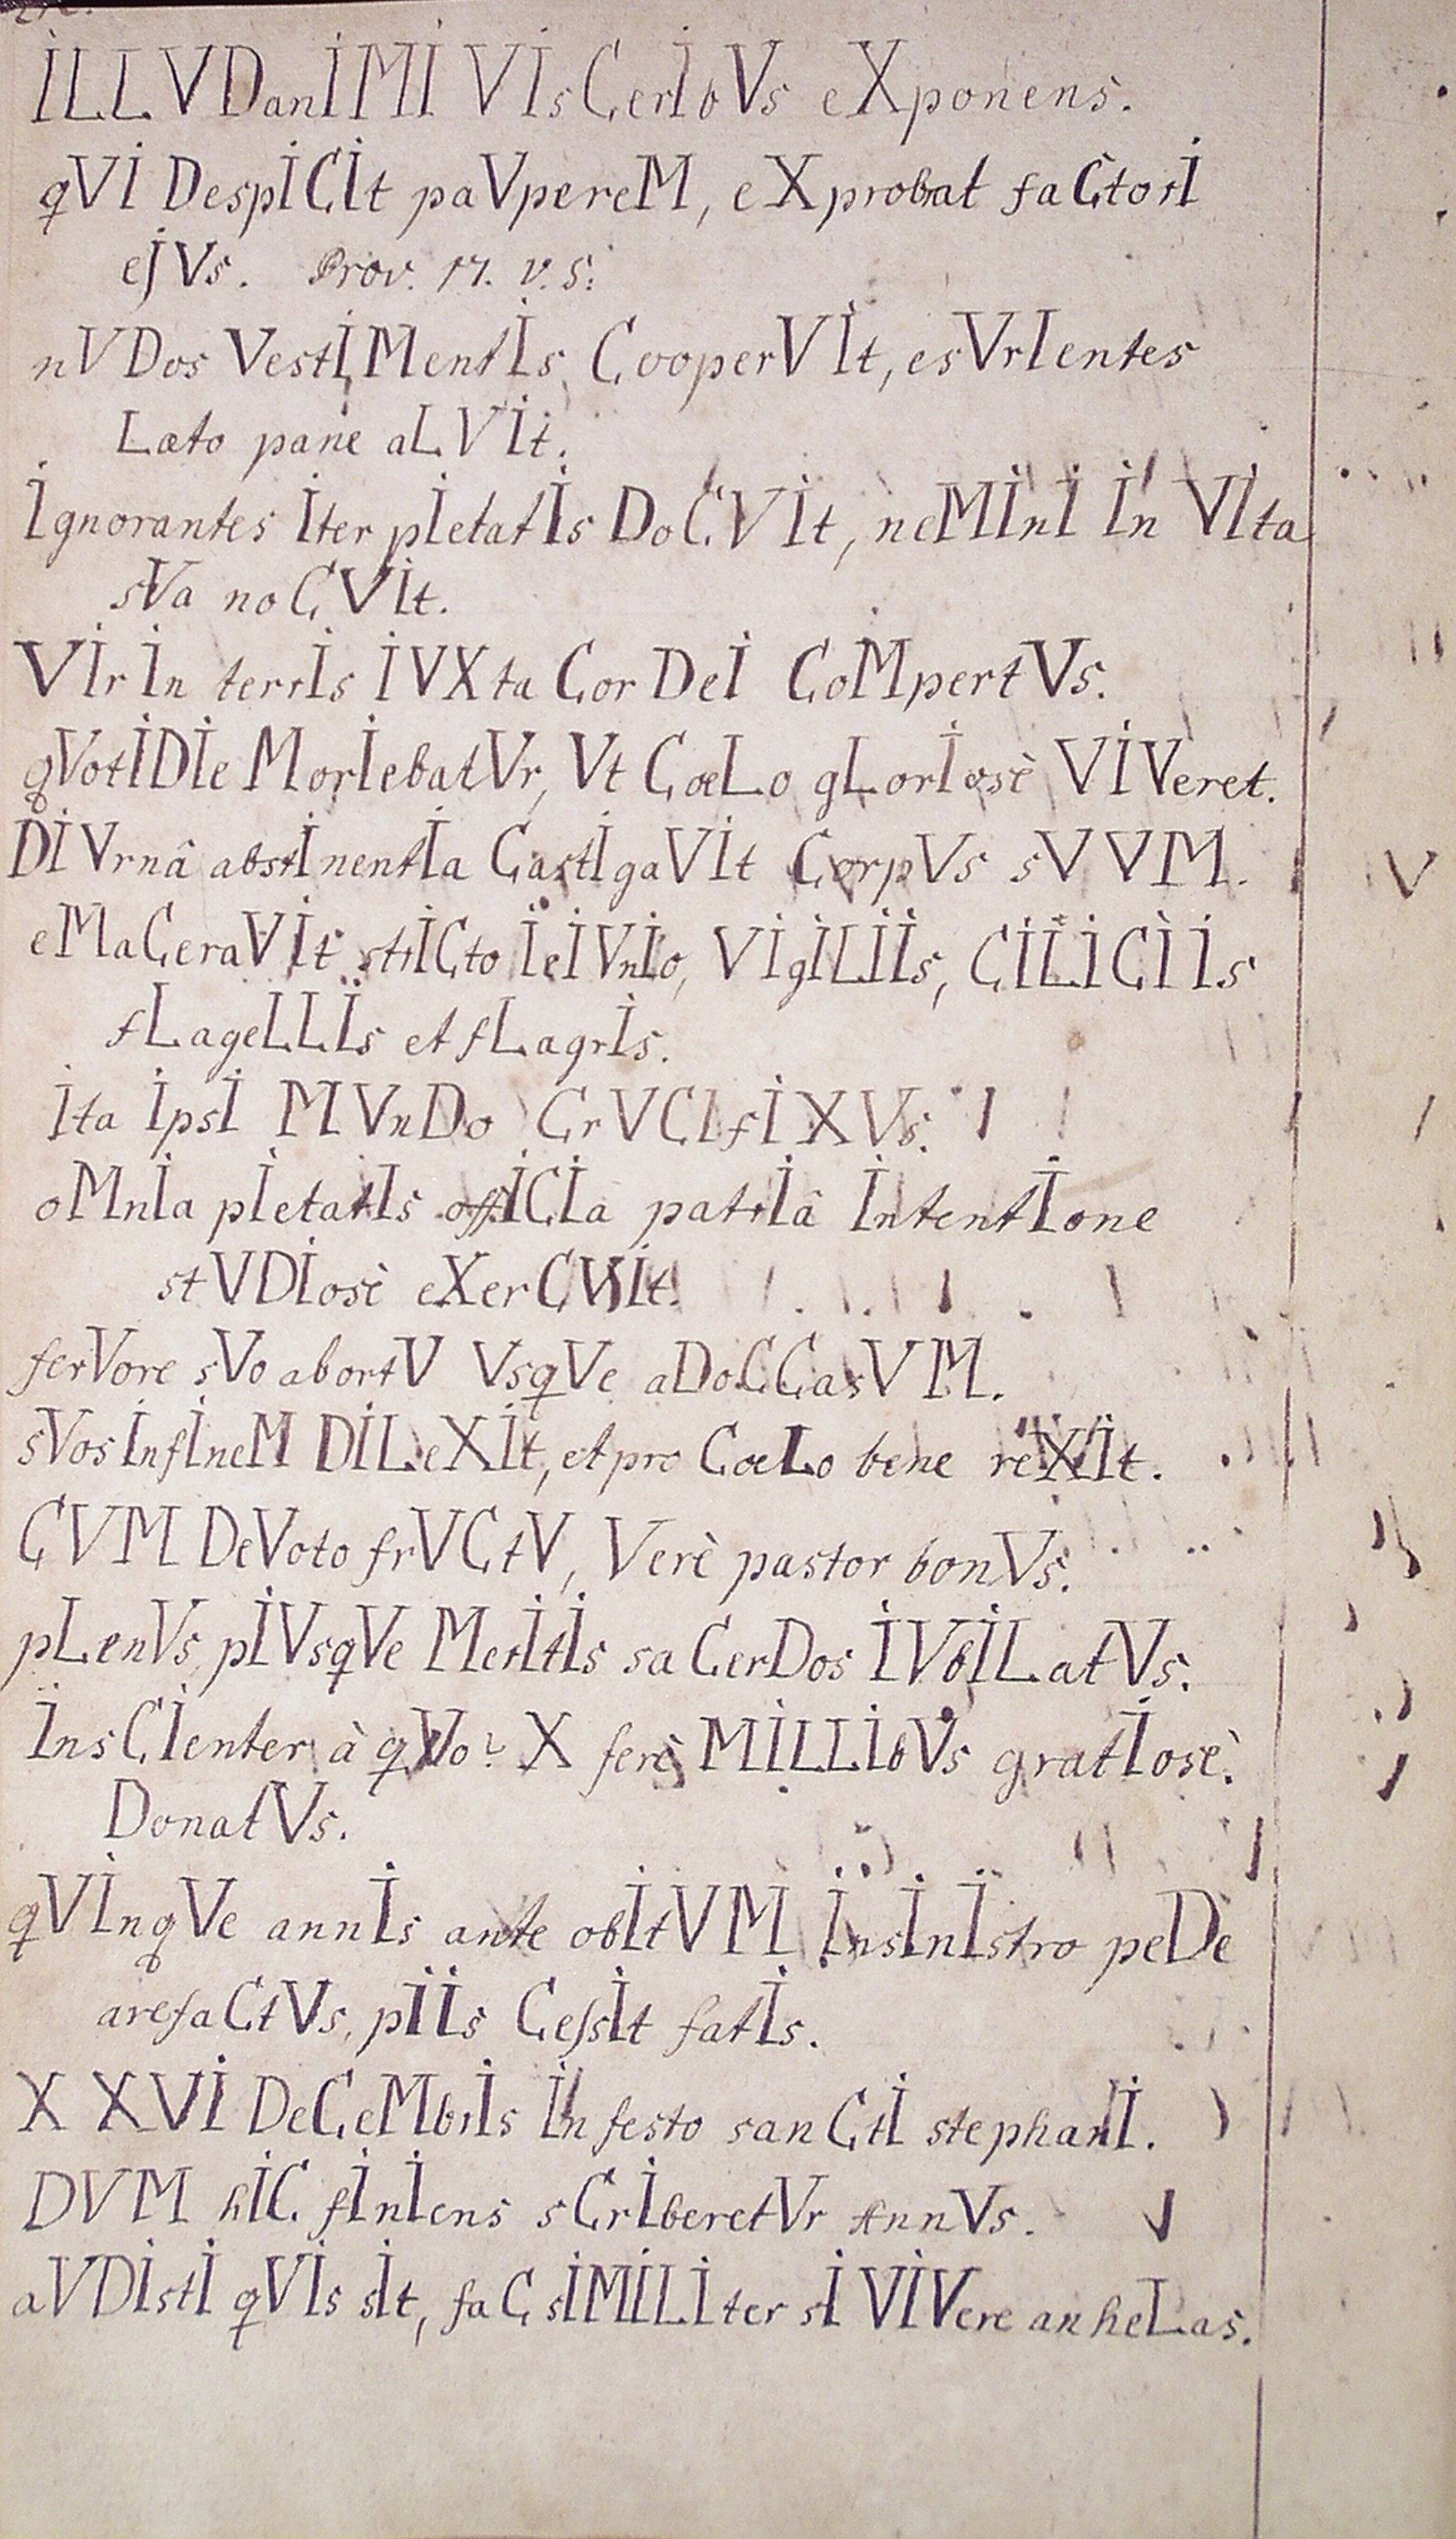 ILLVDanIMI VIsCerIbVs eXponens.
qVI DespICIt paVpereM, eXprobat faCtorI
ejVs. Prov. 17. v. 5.
nVDos VestIMentIs CooperVIt, esVrIentes
Læto pane aLVIt.
Ignorantes Iter pIetatIs DoCVIt, neMInI In VIta
sVa noCVIt.
VIr In terrIs IVXta Cor DeI CoMpertVs.
qVotIDIe MorIebatVr, Vt CœLo gLorIosè VIVeret.
DIVrnâ abstInentIa CastIgaVIt CorpVs sVVM.
eMaCeraVIt strICto IeIVnIo, VIgILIIs, CILICIIs
fLageLLIs et fLagrIs.
Ita IpsI MVnDo CrVCIfIXVs.
oMnIa pIetatIs offICIa patrIâ IntentIone
stVDIosè eXerCVIt.
ferVore sVo abortV VsqVe aDoCCasVM.
sVos InfIneM DILeXIt, et pro CœLo bene reXIt.
CVM DeVoto frVCtV, Verè pastor bonVs.
pLenVs, pIVsqVe MerItIs saCerDos IVbILatVs.
InsCIenter à qVo? X ferè MILLIbVs gratIosè
DonatVs.
qVInqVe annIs ante obItVM InsInIstro peDe
arefaCtVs, pIIs CessIt fatIs.
XXVI DeCeMbrIs In festo sanCtI stephanI.
DVM hIC fInIens sCrIberetVr AnnVs.
aVDIstI qVIs sIt, faC sIMILIter sI VIVere anheLas.